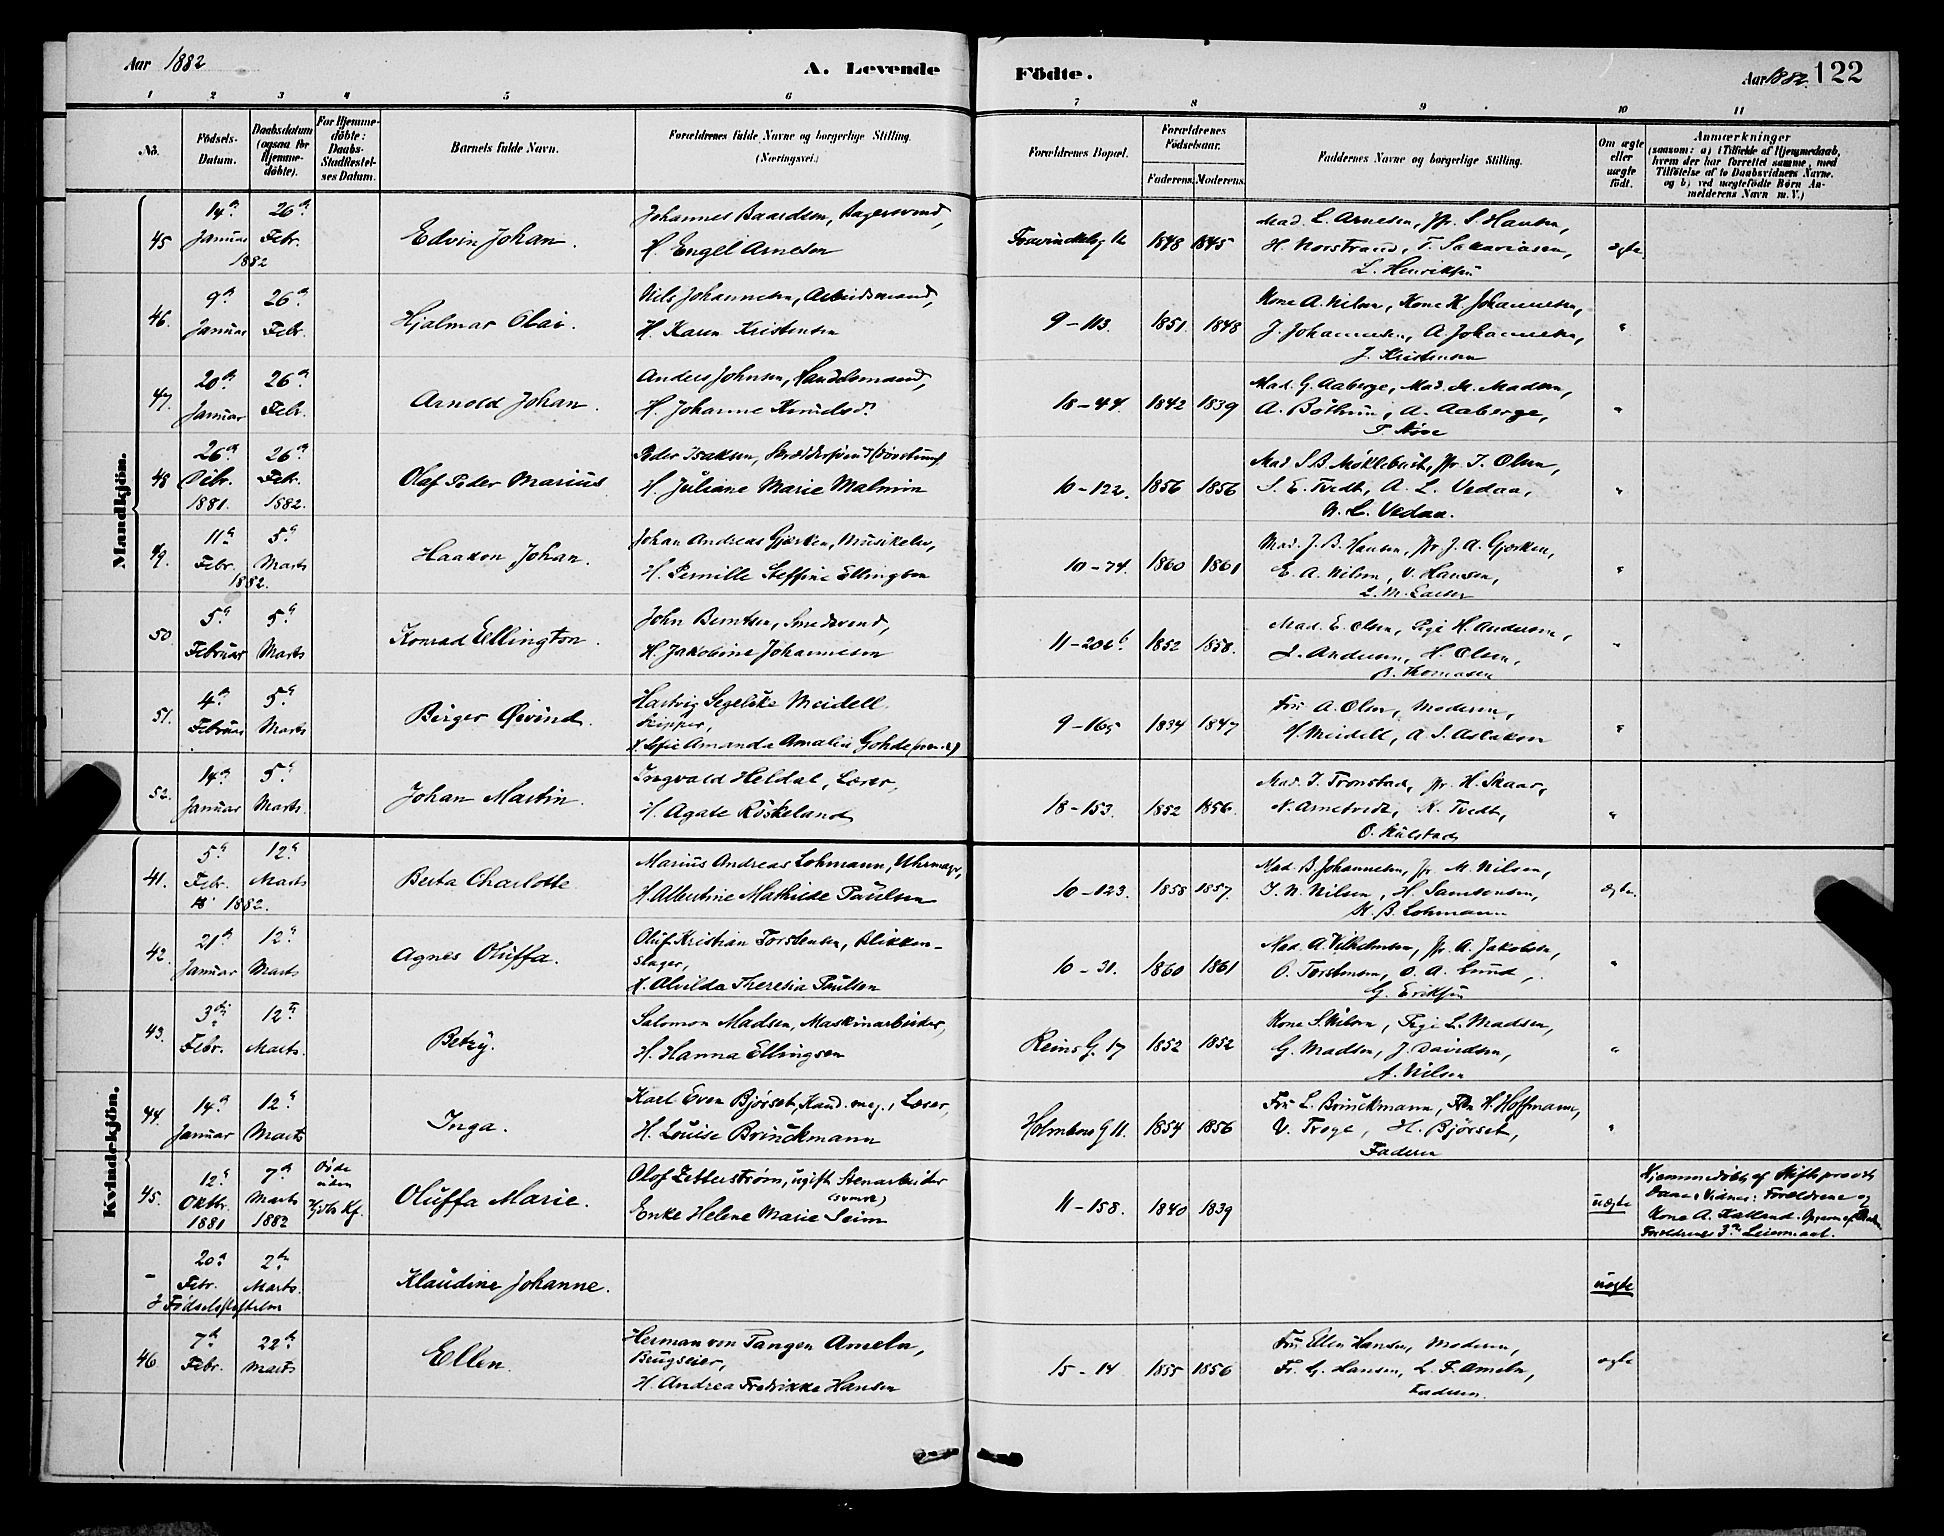 Aar 1882
A. Levende
Födte.
Aar 1882. 122
1 2 3 4 5 6 7 8 9 10 11
No.
Födsels-Datum.
Daabsdatum (ogsaa for Hjemme-döbte).
For Hjemme-döbte: Daabs-Stadfæstel-ses Datum.
Barnets fulde Navn.
Forældrenes fulde Navne og borgerlige Stilling. (Næringsvei.)
Forældrenes Bopæl.
Forældrenes Födselsaar.
Faderens. Moderens.
Faddernes Navne og borgerlige Stilling.
Om ægte eller uægte födt.
Anmærkninger
(saasom: a) i Tilfælde af Hjemmedaab, hvem der har forrettet samme, med Tilföielse af to Daabsvidners Navne. og b) ved uægtefödte Börn An-melderens Navn m.V.)
Mandkjön.
45 14de Januar 26de Febr. 1882
Edvin Johan.
Johannes Baardsen, Bagersvend,
H. Engel Arnesen
1848 1845
Mad. L. Arnesen, Jfr. S. Hansen,
H. Norstrand, T. Sakariasen,
L. Henriksen
ægte
46. 9de Januar 26de Febr.
Hjalmar Olai.
Nils Johannesen, Arbeidsmand,
H. Karen Kristensen
9-113. 1851. 1848
Kone A. Nilsen, Kone K. Johannesen,
J. Johannesen, A. Johannesen,
J. Kristensen
"
47. 20de Januar 26de Febr.
Arnold Johan.
Anders Johnsen, Handelsmand,
H. Johanne Knudsd.
18-44. 1842 1839
Mad. G. Aaberge, Mad. M. Madsen,
A. Böthun, A. Aaberge,
"
48 26de Debr. 1881. 26de Febr. 1882.
Olaf Peder Marius
Peder Isaksen,
H. Juliane Marie Malmin
10-122. 1856 1856
Mad S. B. Möklebust, Jfr. I. Olsen,
S. E. Tvedt, A. L. Vedaa,
N. L. Vedaa.
"
49. 11te Febr. 5te Marts 1882.
Haakon Johan.
Johan Andreas Gjerken, Musikelev,
H. Pernille Steffine Ellington
10-74. 1860 1861
Mad. J. B. Hansen, Jfr. J. A. Gjerken,
E. A. Nilsen, V. Hansen,
"
50. 5te Februar 5te Marts
Konrad Ellington.
John Berntsen, Smedsvend,
H. Jakobine Johannesen
11-206b. 1852 1858.
Mad. E. Olsen, Pige H. Andersen,
J. Andersen, H. Olsen,
B. Thomasen
"
51. 4de Februar 5te Marts
Birger Øivind.
Hartvig Segelcke Meidell
Skipper,
Amanda Amalie Gohde
9-165 1834 1847
Fru A. Olsen, Moderen,
H. Meidell, A. S. Aslaksen
"
52. 14de Januar 5te Marts
Johan Martin.
Ingvald Heldal, Lærer,
H. Agate Röskeland
18-153. 1852 1856.
Mad. I. Tronstad, Jfr. H. Skaar,
N. Arnetvedt, K. Tvedt,
O. Kulstad
"
Kvindekjön.
41. 5te Febr. 12te Marts 1882.
Berta Charlotte
Marius Andreas Lohmann, Uhrmager,
H. Albertine Mathilde Paulsen
10-123. 1858 1857.
Mad. B. Johannesen, Jfr. M. Nilsen,
I. N. Nilsen, H. Samsonsen,
K. B. Lohmann
ægte.
42. 21de Januar 12te Marts
Agnes Oluffa.
Oluf Kristian Torstensen, Blikken-
slager,
H. Alvilda Theresia Paulsen
10-31. 1860 1861
Mad. A. Vilhelmsen, Jfr. A. Jakobsen,
O. Torstensen, O. A. Lund,
G. Eriksen
"
43. 3die Febr. 12te Marts.
Betzy.
Salomon Madsen, Maskinarbeider,
H. Hanna Ellingsen
Reins G. 17 1852 1852
Kone S. Nilsen, Pige L. Madsen,
G. Madsen, J. Davidsen,
A. Nilsen
"
44. 14de Januar 12te Marts
Inga.
Karl Even Bjørset, Kand. mag., Lærer,
H. Louise Brinckmann
Holmbens G 11. 1854 1856
Fru L. Brinckmann, Frk H. Hoffmann,
V. Troye, H. Bjørset,
Faderen
"
45. 12te Oktbr. 1881 7de Marts 1882
Døde
uden
Oluffa Marie.
Olof Zetterström, ugift Stenarbeider
(svensk)
Enke Helene Marie Seim
11-158. 1840 1839
uægte
Hjemmedöbt af Stiftsprovst
Daae, Vidner: Forældrene og
Kone A. Kalland.
Forældrenes 3die Leiermaal.
- 20de Febr. 2den Marts.
Födselsstiftelsen
Klaudine Johanne.
uægte
46 7de Febr. 22de Marts
Ellen.
Herman von Tangen Ameln,
Brugseier,
H. Andrea Fredrikke Hansen
15-14 1855 1856
Fru Ellen Hansen, Moderen,
Fr. G. Hansen, L. F. Ameln,
Faderen.
ægte